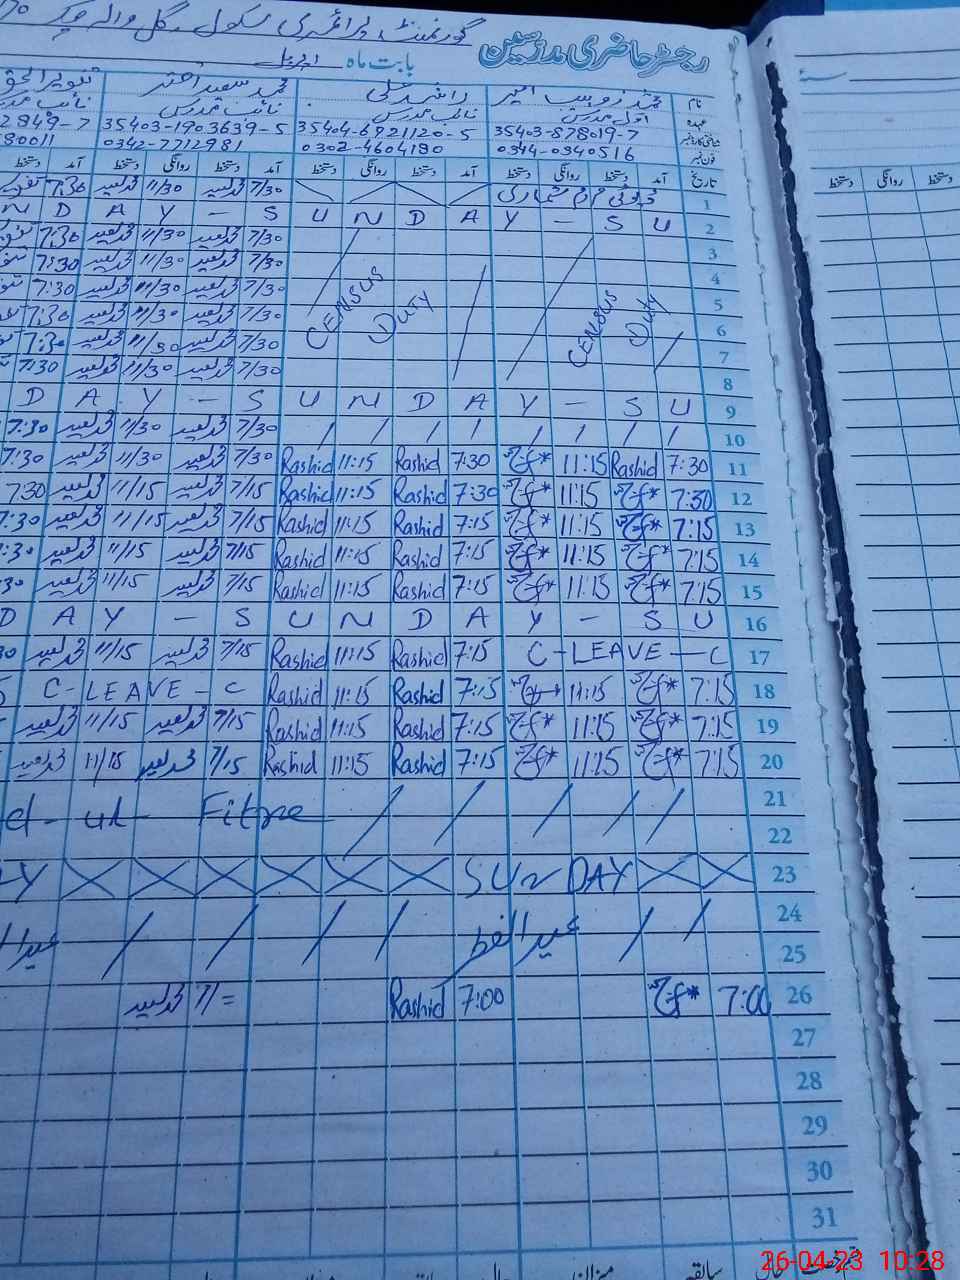 گورنمنٹ پرائمری سکول گل والہ چک
رجسٹر حاضری مدرسین بابت ماہ اپریل
نام محمد زوہیب امیر راشد علی محمد سعید اختر تنویر الحق
عہدہ اول مدرس نائب مدرس نائب مدرس نائب مدرس
شناختی کارڈ نمبر 35403-878019-7 35404-6921120-5 35403-1903639-5 2849-7
فون نمبر 0344-0340516 0302-4604180 0342-7712981 80011
تاریخ آمد دستخط روانگی دستخط آمد دستخط روانگی دستخط آمد دستخط روانگی دستخط آمد دستخط
1 ڈیوٹی مردم شماری 7/30 محمد سعید 11/30 محمد سعید 7:30
N D A Y - S U N D A Y - S U 2
3 7/30 محمد سعید 11/30 محمد سعید 7:30
4 7/30 محمد سعید 11/30 محمد سعید 7:30
5 7/30 محمد سعید 11/30 محمد سعید 7:30
CENSUS Duty CENSUS Duty
6 7/30 محمد سعید 11/30 محمد سعید 7:30
7 7/30 محمد سعید 11/30 محمد سعید 7:30
8 7/30 محمد سعید 11/30 محمد سعید 7:30
D A Y - S U N D A Y - S U 9
10 7/30 محمد سعید 11/30 محمد سعید 7:30
11 7:30 Rashid 11:15 7:30 Rashid 11:15 Rashid 7/30 محمد سعید 11/30 محمد سعید 7:30
12 7:30 11:15 7:30 Rashid 11:15 Rashid 7/15 محمد سعید 11/15 محمد سعید 7:30
13 7:15 11:15 7:15 Rashid 11:15 Rashid 7/15 محمد سعید 11/15 محمد سعید 7:30
14 7:15 11:15 7:15 Rashid 11:15 Rashid 7/15 محمد سعید 11/15 محمد سعید :30
15 7:15 11:15 7:15 Rashid 11:15 Rashid 7/15 محمد سعید 11/15 محمد سعید 30
D A Y - S U N D A Y - S U 16
17 C-LEAVE-C 7:15 Rashid 11:15 Rashid 7/15 محمد سعید 11/15 محمد سعید 30
18 7:15 11:15 7:15 Rashid 11:15 Rashid C-LEAVE-C
19 7:15 11:15 7:15 Rashid 11:15 Rashid 7/15 محمد سعید 11/15 محمد سعید
20 7:15 11:15 7:15 Rashid 11:15 Rashid 7/15 محمد سعید 11/15 محمد سعید
21
d-ul-Fitre
22
Y SUNDAY 23
24
عید الفطر
25
26 7:00 7:00 Rashid 7/= محمد سعید
27
28
29
30
31
رخصت حال سابقہ میزان حال
26-04-23 10:28
دستخط روانگی دستخط